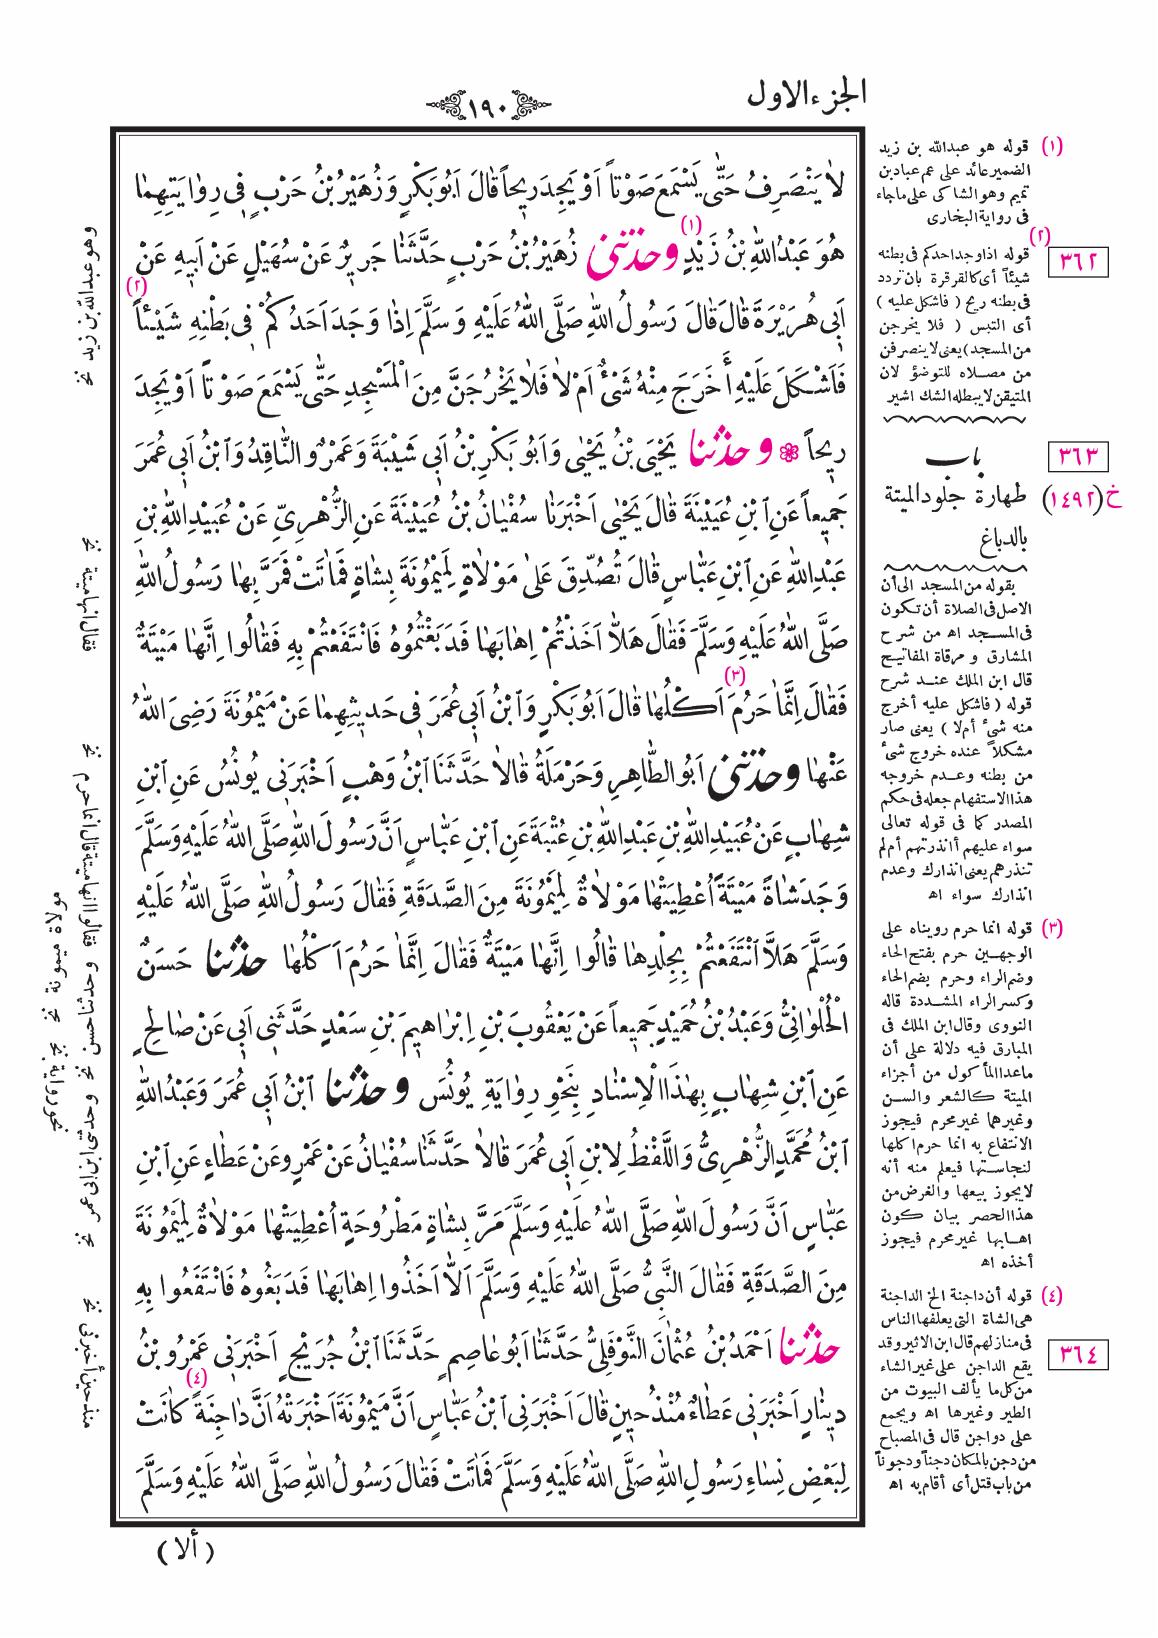 الجزء الاول
١٩٠
لَا يَنْصَرِفُ حَتّٰى يَسْمَعَ صَوْتاً اَوْ يَجِدَ رِيحاً قَالَ اَبُو بَكْرٍ وَ زُهَيْرُ بْنُ حَرْبٍ فِي رِوَايَتِهِمَا
هُوَ عَبْدُ اللّٰهِ بْنُ زَيْدٍ (١) وحدثنى زُهَيْرُ بْنُ حَرْبٍ حَدَّثَنَا جَرِيرٌ عَنْ سُهَيْلٍ عَنْ اَبِيهِ عَنْ
اَبِي هُرَيْرَةَ قَالَ قَالَ رَسُولُ اللّٰهِ صَلَّى اللّٰهُ عَلَيْهِ وَسَلَّمَ اِذَا وَجَدَ اَحَدُكُمْ فِي بَطْنِهِ شَيْئاً (٢)
فَاَشْكَلَ عَلَيْهِ أَخَرَجَ مِنْهُ شَيْءٌ اَمْ لَا فَلَا يَخْرُجَنَّ مِنَ الْمَسْجِدِ حَتّٰى يَسْمَعَ صَوْتاً اَوْ يَجِدَ
رِيحاً ❁ وحدثنا يَحْيَى بْنُ يَحْيٰى وَ اَبُو بَكْرِ بْنُ اَبِي شَيْبَةَ وَعَمْرٌو النَّاقِدُ وَابْنُ اَبِي عُمَرَ
جَمِيعاً عَنِ ابْنِ عُيَيْنَةَ قَالَ يَحْيٰى اَخْبَرَنَا سُفْيَانُ بْنُ عُيَيْنَةَ عَنِ الزُّهْرِيِّ عَنْ عُبَيْدِ اللّٰهِ بْنِ
عَبْدِ اللّٰهِ عَنِ ابْنِ عَبَّاسٍ قَالَ تُصُدِّقَ عَلٰى مَوْلَاةٍ لِمَيْمُونَةَ بِشَاةٍ فَمَاتَتْ فَمَرَّ بِهَا رَسُولُ اللّٰهِ
صَلَّى اللّٰهُ عَلَيْهِ وَسَلَّمَ فَقَالَ هَلَّا اَخَذْتُمْ اِهَابَهَا فَدَبَغْتُمُوهُ فَانْتَفَعْتُمْ بِهِ فَقَالُوا اِنَّهَا مَيْتَةٌ
فَقَالَ اِنَّمَا حَرُمَ (٣) اَكْلُهَا قَالَ اَبُو بَكْرٍ وَابْنُ اَبِي عُمَرَ فِي حَدِيثِهِمَا عَنْ مَيْمُونَةَ رَضِيَ اللّٰهُ
عَنْهَا وحدثنى اَبُو الطَّاهِرِ وَحَرْمَلَةُ قَالَا حَدَّثَنَا ابْنُ وَهْبٍ اَخْبَرَنِي يُونُسُ عَنِ ابْنِ
شِهَابٍ عَنْ عُبَيْدِ اللّٰهِ بْنِ عَبْدِ اللّٰهِ بْنِ عُتْبَةَ عَنِ ابْنِ عَبَّاسٍ اَنَّ رَسُولَ اللّٰهِ صَلَّى اللّٰهُ عَلَيْهِ وَسَلَّمَ
وَجَدَ شَاةً مَيْتَةً اُعْطِيَتْهَا مَوْلَاةٌ لِمَيْمُونَةَ مِنَ الصَّدَقَةِ فَقَالَ رَسُولُ اللّٰهِ صَلَّى اللّٰهُ عَلَيْهِ
وَسَلَّمَ هَلَّا انْتَفَعْتُمْ بِجِلْدِهَا قَالُوا اِنَّهَا مَيْتَةٌ فَقَالَ اِنَّمَا حَرُمَ اَكْلُهَا حدثنا حَسَنٌ
الْحُلْوَانِيُّ وَعَبْدُ بْنُ حُمَيْدٍ جَمِيعاً عَنْ يَعْقُوبَ بْنِ اِبْرَاهِيمَ بْنِ سَعْدٍ حَدَّثَنِي اَبِي عَنْ صَالِحٍ
عَنِ ابْنِ شِهَابٍ بِهٰذَا الْاِسْنَادِ بِنَحْوِ رِوَايَةِ يُونُسَ وحدثنا ابْنُ اَبِي عُمَرَ وَعَبْدُ اللّٰهِ
ابْنُ مُحَمَّدٍ الزُّهْرِيُّ وَاللَّفْظُ لِابْنِ اَبِي عُمَرَ قَالَا حَدَّثَنَا سُفْيَانُ عَنْ عَمْرٍو عَنْ عَطَاءٍ عَنِ ابْنِ
عَبَّاسٍ اَنَّ رَسُولَ اللّٰهِ صَلَّى اللّٰهُ عَلَيْهِ وَسَلَّمَ مَرَّ بِشَاةٍ مَطْرُوحَةٍ اُعْطِيَتْهَا مَوْلَاةٌ لِمَيْمُونَةَ
مِنَ الصَّدَقَةِ فَقَالَ النَّبِيُّ صَلَّى اللّٰهُ عَلَيْهِ وَسَلَّمَ اَلَّا اَخَذُوا اِهَابَهَا فَدَبَغُوهُ فَانْتَفَعُوا بِهِ
حدثنا اَحْمَدُ بْنُ عُثْمَانَ النَّوْفَلِيُّ حَدَّثَنَا اَبُو عَاصِمٍ حَدَّثَنَا ابْنُ جُرَيْجٍ اَخْبَرَنِي عَمْرُو بْنُ
دِينَارٍ اَخْبَرَنِي عَطَاءٌ مُنْذُ حِينٍ قَالَ اَخْبَرَنِي ابْنُ عَبَّاسٍ اَنَّ مَيْمُونَةَ اَخْبَرَتْهُ اَنَّ دَاجِنَةً (٤) كَانَتْ
لِبَعْضِ نِسَاءِ رَسُولِ اللّٰهِ صَلَّى اللّٰهُ عَلَيْهِ وَسَلَّمَ فَمَاتَتْ فَقَالَ رَسُولُ اللّٰهِ صَلَّى اللّٰهُ عَلَيْهِ وَسَلَّمَ
( ألا )
(١) قوله هو عبدالله بن زيد
الضمير عائد على عم عباد بن
تميم وهو الشاكى على ماجاء
فى رواية البخارى
(٢)
٣٦٢
قوله اذا وجد احدكم فى بطنه
شيئاً أى كالقرقرة بان تردد
فى بطنه ريح ( فاشكل عليه )
أى التبس ( فلا يخرجن
من المسجد) يعنى لا ينصرفن
من مصلاه للتوضؤ لان
المتيقن لا يبطله الشك اشير
٣٦٣
باب
طهارة جلود الميتة
خ (١٤٩٢)
بالدباغ
بقوله من المسجد الى أن
الاصل فى الصلاة أن تكون
فى المسجد اه من شرح
المشارق و مرقاة المفاتيح
قال ابن الملك عند شرح
قوله ( فاشكل عليه أخرج
منه شىء أم لا ) يعنى صار
مشكلاً عنده خروج شىء
من بطنه وعدم خروجه
هذا الاستفهام جعله فى حكم
المصدر كما فى قوله تعالى
سواء عليهم أأنذرتهم أم لم
تنذرهم يعنى انذارك وعدم
انذارك سواء اه
(٣) قوله انما حرم رويناه على
الوجهين حرم بفتح الحاء
وضم الراء وحرم بضم الحاء
وكسر الراء المشددة قاله
النووى وقال ابن الملك فى
المبارق فيه دلالة على أن
ماعدا المأكول من أجزاء
الميتة كالشعر والسن
وغيرها غير محرم فيجوز
الانتفاع به انما حرم اكلها
لنجاستها فيعلم منه أنه
لايجوز بيعها والغرض من
هذا الحصر بيان كون
اهابها غير محرم فيجوز
أخذه اه
(٤) قوله أن داجنة الخ الداجنة
هى الشاة التى يعلفها الناس
فى منازلهم قال ابن الاثير وقد
٣٦٤
يقع الداجن على غير الشاء
من كل ما يألف البيوت من
الطير وغيرها اه ويجمع
على دواجن قال فى المصباح
من دجن بالمكان دجناً ودجوناً
من باب قتل أى أقام به اه
وهو عبدالله بن زيد نخ
فقال انها ميتة نخ
فقالوا انها ميتة قال انما حرم نخ
وحدثنا حسن نخ
وحدثنى ابن ابى عمر نخ
مولاة ميمونة نخ
نحو رواية نخ
منذ حين أخبرنى نخ